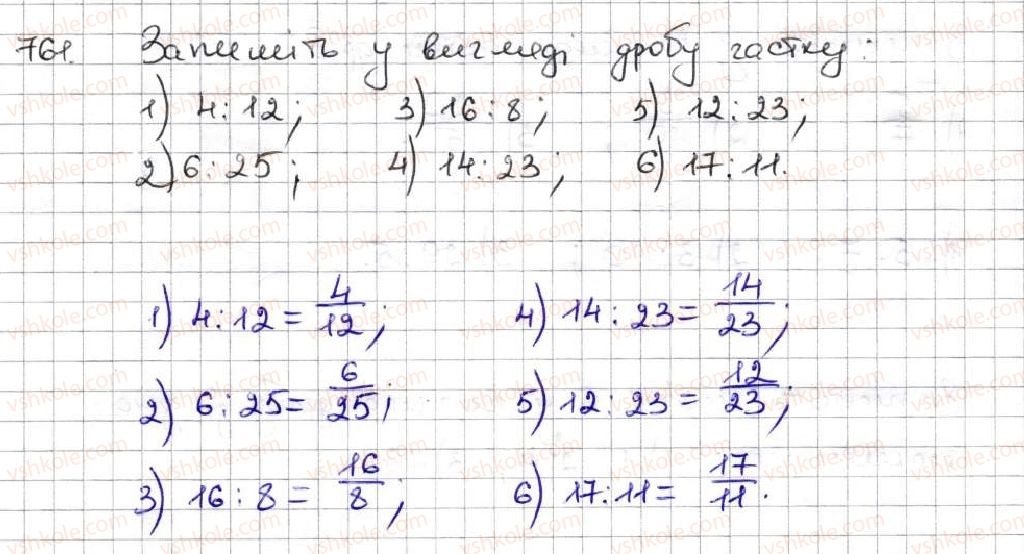 761. Запишіть у вигляді дробу частку:
1) 4:12; 3) 16:8; 5) 12:23;
2) 6:25; 4) 14:23; 6) 17:11.
1) 4:12 = 4/12; 4) 14:23 = 14/23;
2) 6:25 = 6/25; 5) 12:23 = 12/23;
3) 16:8 = 16/8; 6) 17:11 = 17/11.
vshkole.com